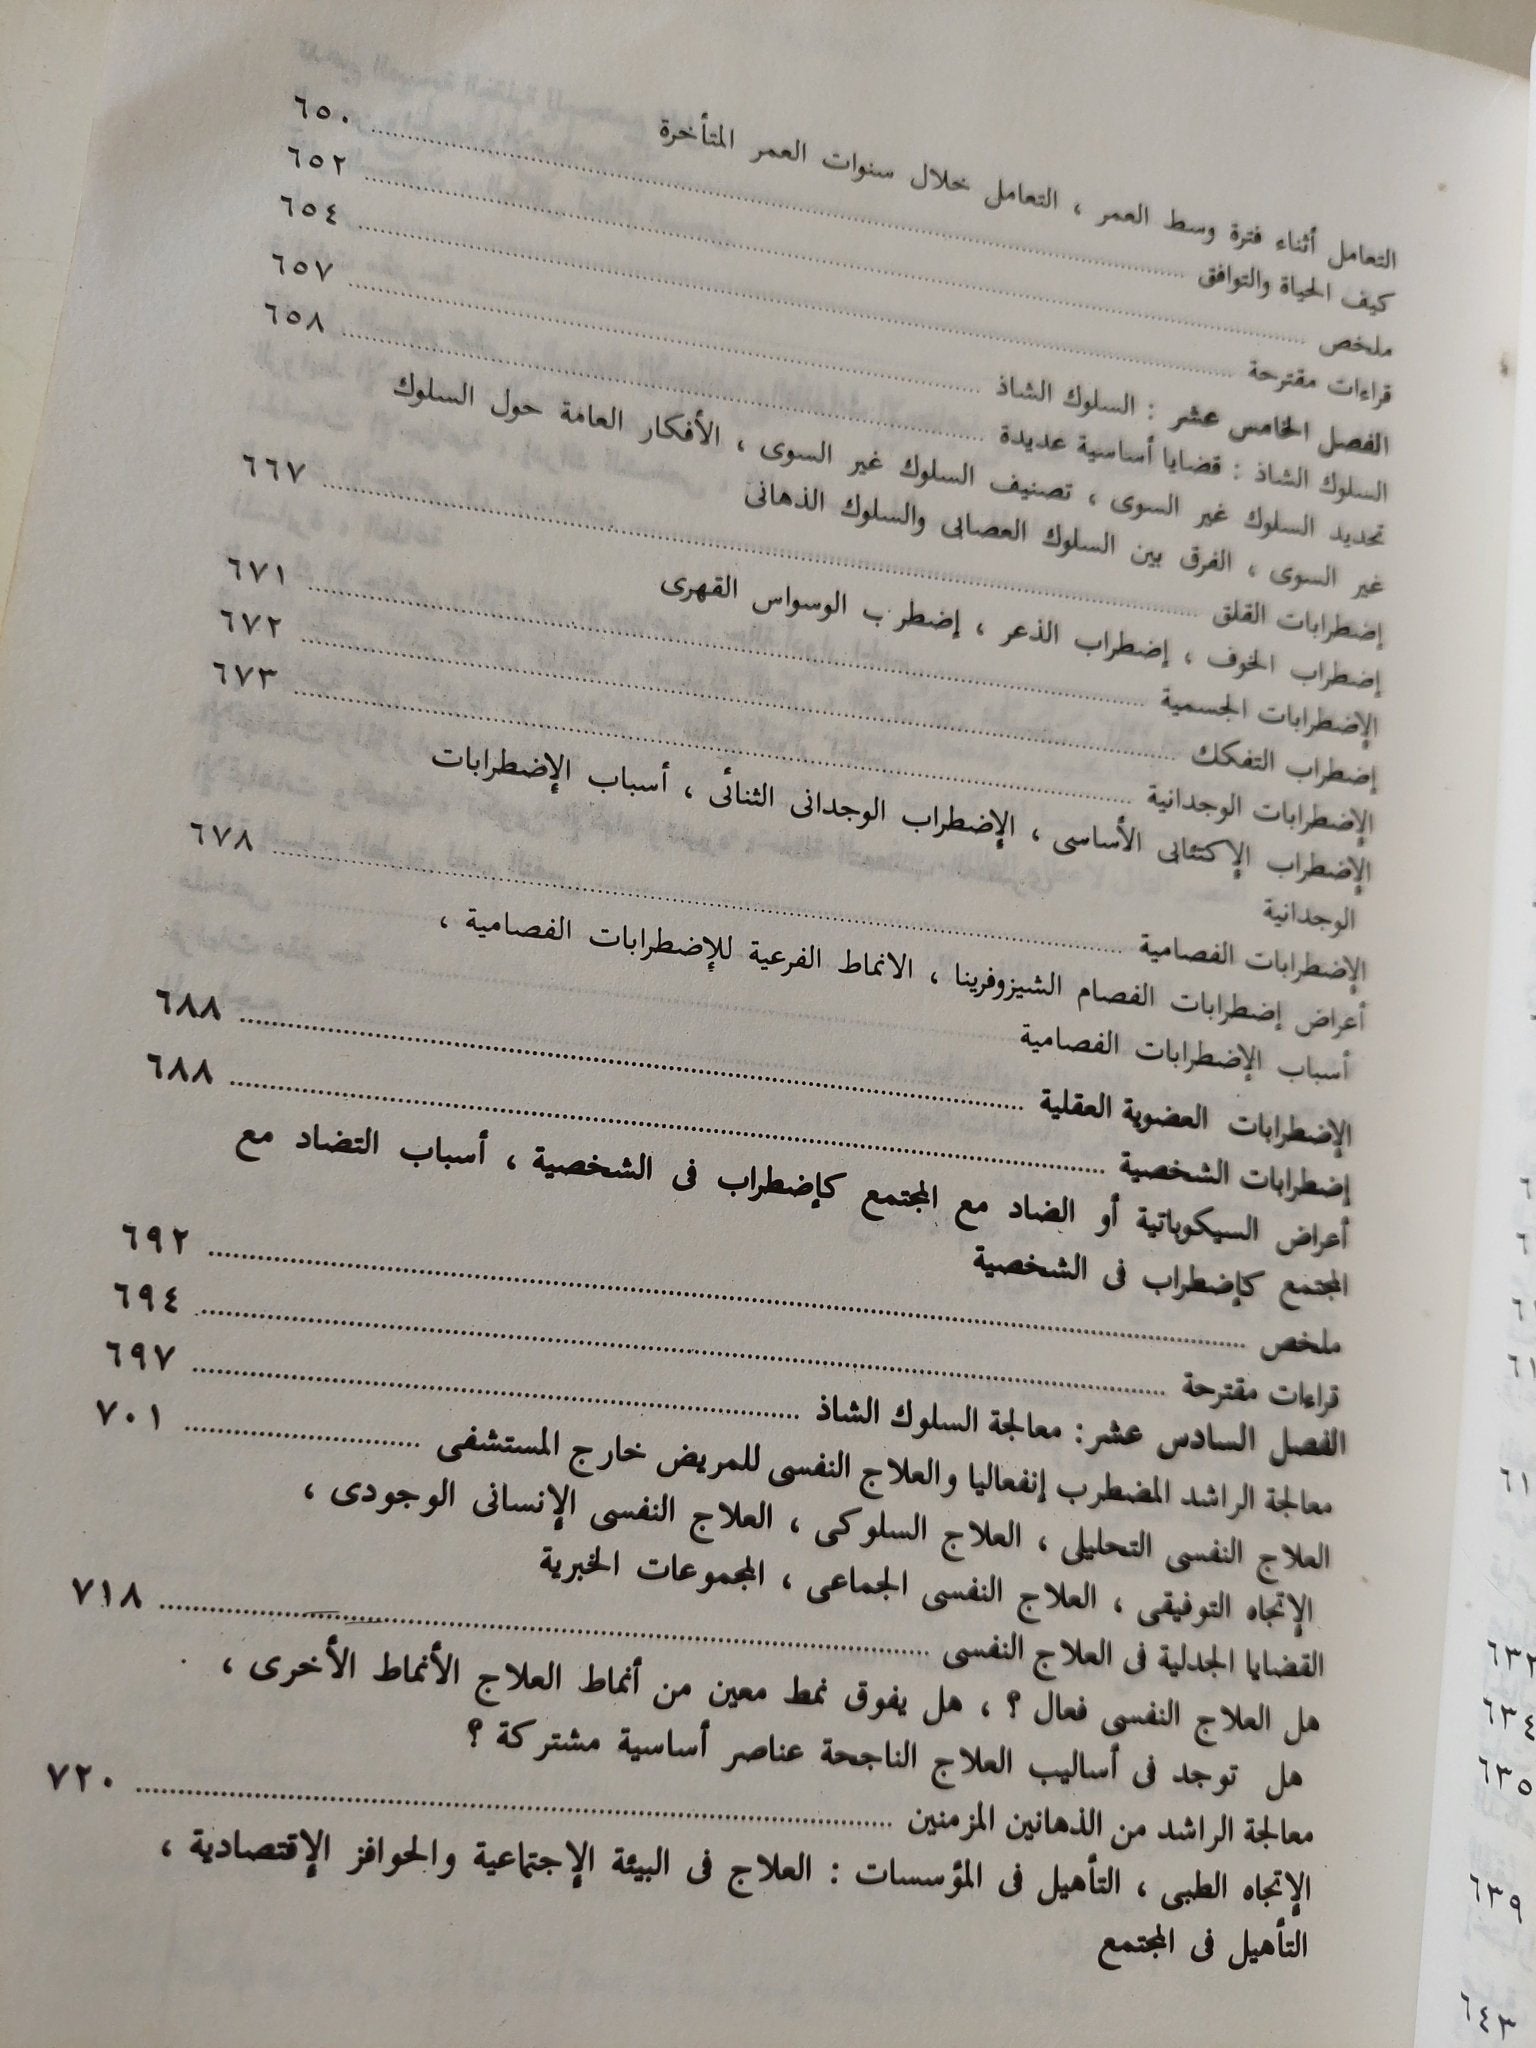 التعامل أثناء فترة وسط العمر ، التعامل خلال سنوات العمر المتأخرة
كيف الحياة والتوافق ........ ٦٥٠
ملخص ........ ٦٥٢
قراءات مقترحة ........ ٦٥٤
الفصل الخامس عشر : السلوك الشاذ ........ ٦٥٧
السلوك الشاذ : قضايا أساسية عديدة ........ ٦٥٨
تحديد السلوك غير السوى ، تصنيف السلوك غير السوى ، الأفكار العامة حول السلوك
غير السوى ، الفرق بين السلوك العصابى والسلوك الذهانى
إضطرابات القلق ........ ٦٦٧
إضطراب الخوف ، إضطراب الذعر ، إضطر ب الوسواس القهرى
الإضطرابات الجسمية ........ ٦٧١
إضطراب التفكك ........ ٦٧٢
الإضطرابات الوجدانية ........ ٦٧٣
الإضطراب الإكتئابى الأساسى ، الإضطراب الوجدانى الثنائى ، أسباب الإضطرابات
الوجدانية
الإضطرابات الفصامية ........ ٦٧٨
أعراض إضطرابات الفصام الشيزوفرينا ، الانماط الفرعية للإضطرابات الفصامية ،
أسباب الإضطرابات الفصامية
الإضطرابات العضوية العقلية ........ ٦٨٨
إضطرابات الشخصية ........ ٦٨٨
أعراض السيكوباتية أو الضاد مع المجتمع كإضطراب فى الشخصية ، أسباب التضاد مع
المجتمع كإضطراب فى الشخصية
ملخص ........ ٦٩٢
قراءات مقترحة ........ ٦٩٤
الفصل السادس عشر: معالجة السلوك الشاذ ........ ٦٩٧
معالجة الراشد المضطرب إنفعاليا والعلاج النفسى للمريض خارج المستشفى ........ ٧٠١
العلاج النفسى التحليلى ، العلاج السلوكى ، العلاج النفسى الإنسانى الوجودى ،
الإتجاه التوفيقى ، العلاج النفسى الجماعى ، المجموعات الخبرية
القضايا الجدلية فى العلاج النفسى ........ ٧١٨
هل العلاج النفسى فعال ؟ ، هل يفوق نمط معين من أنماط العلاج الأنماط الأخرى ،
هل توجد فى أساليب العلاج الناجحة عناصر أساسية مشتركة ؟
معالجة الراشد من الذهانين المزمنين ........ ٧٢٠
الإتجاه الطبى ، التأهيل فى المؤسسات : العلاج فى البيئة الإجتماعية والحوافز الإقتصادية ،
التأهيل فى المجتمع
٦٣٢
٦٣٤
٦٣٥
٦٣٩
٦٤٣